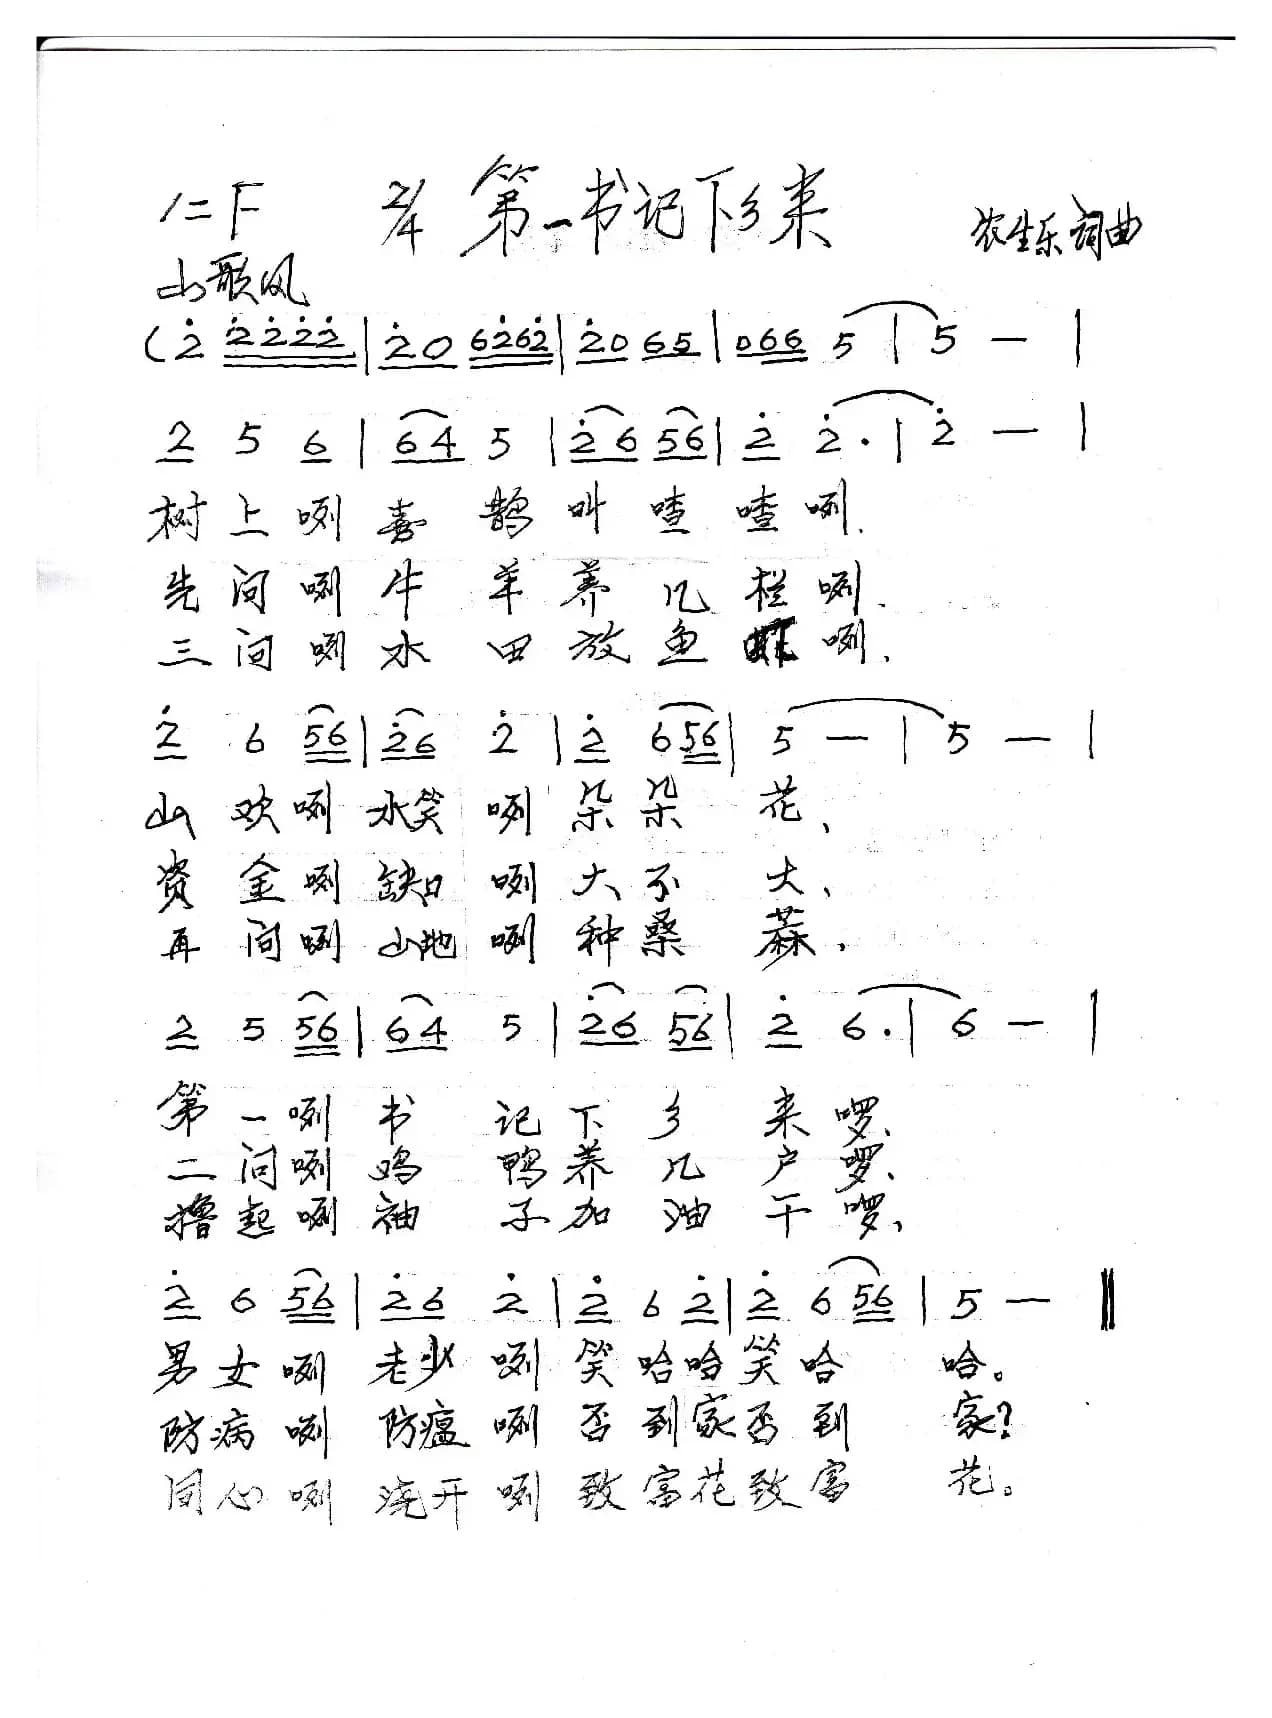 1=F 2/4 第一书记下乡来 农生乐词曲
山歌风
(2̇ 2̇2̇2̇2̇ | 2̇0 62̇62̇ | 2̇0 65 | 066 5 | 5 — |
2 5 6 | 64 5 | 2̇6 56 | 2̇ 2̇· | 2̇ — |
树上咧喜鹊叫喳喳咧.
先问咧牛羊养几栏咧.
三问咧水田放鱼咧.
2̇ 6 56 | 2̇6 2̇ | 2̇ 656 | 5 — | 5 — |
山欢咧水笑咧朵朵花、
资金咧缺口咧大不大、
再问咧山地咧种桑蔴.
2 5 56 | 64 5 | 2̇6 56 | 2̇ 6· | 6 — |
第一咧书记下乡来啰、
二问咧鸡鸭养几户啰、
撸起咧袖子加油干啰,
2̇ 6 56 | 2̇6 2̇ | 2̇ 6 2̇ | 2̇ 656 | 5 — ‖
男女咧老少咧笑哈哈笑哈哈。
防病咧防瘟咧否到家否到家?
同心咧浇开咧致富花致富花。